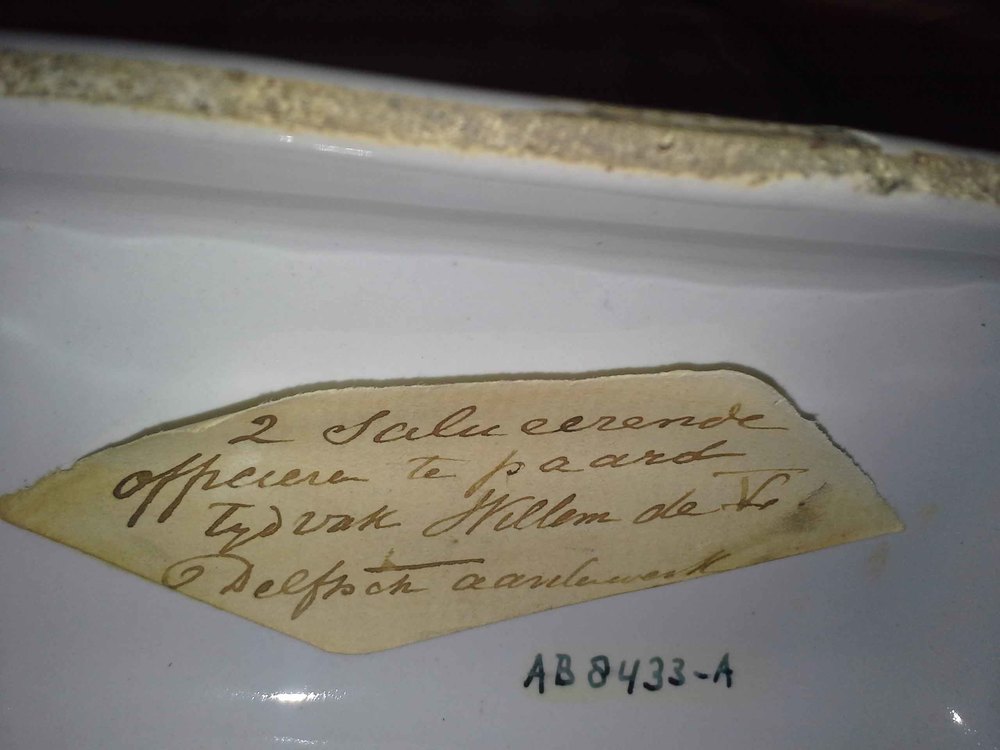 2 Salueerende
officieren te paard
Tydvak Willem de V.
Delfsch aardewerk
AB8433-A